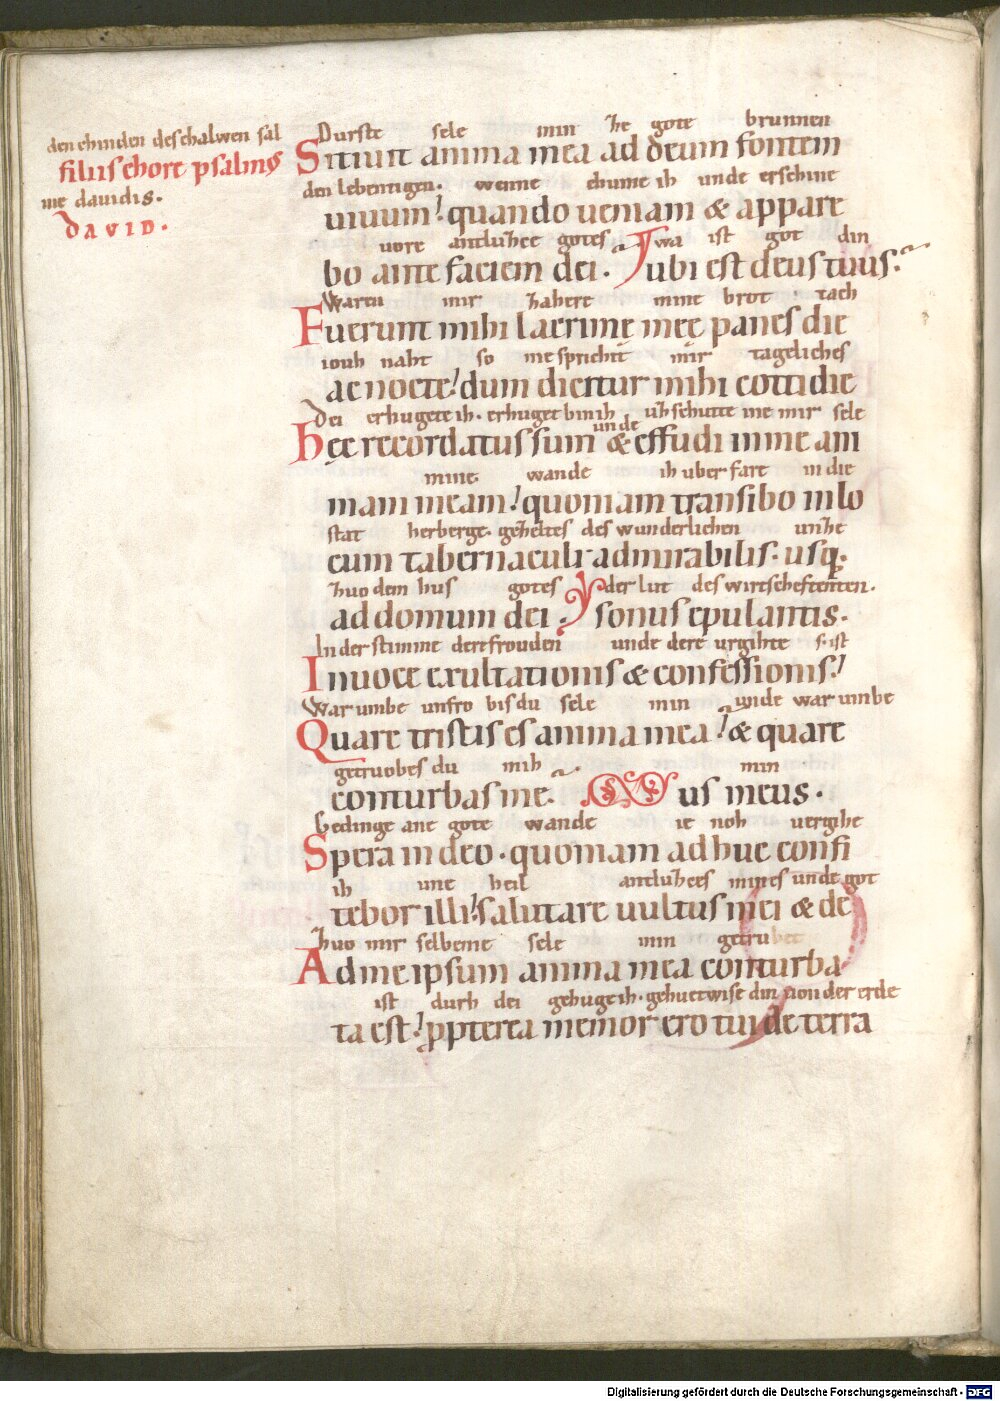 den chinden des chalwen sal
filiis chore psalmus
me dauidis.
DAVID.
Durste sele min ze gote brunnen
Sitiuit anima mea ad deum fontem
den lebentigen. wenne chume ih unde erschine
uiuum! quando ueniam & appare
uore antluzee gotes wa ist got din
bo ante faciem dei. ubi est deus tuus.
Waren mir zahere mine brot tach
Fuerunt mihi lacrimę meę panes die
iouh naht so me sprichit mir tageliches
ac nocte! dum dicitur mihi cottidie
Dei erhugete ih. erhuget bin ih uzschutte me mir sele
unde
hęc recordatus sum & effudi in me ani
mine. wande ih uber fare in die
mam meam! quoniam transibo in lo
stat herberge. gezeltes des wunderlichen unze
cum tabernaculi admirabilis. usq;
zuo dem hus gotes der lut des wirtscheftenten.
ad domum dei. sonus epulantis.
In der stimme dere frouden unde dere urgihte s. ist
In uoce exultationis & confessionis!
War umbe unfro bis du sele min unde war umbe
Quare tristis es anima mea! & quare
getruobes du mih min
conturbas me. us meus.
Gedinge ane gote wande ie noh uergihe
Spera in deo. quoniam adhuc confi
ih ime heil antluzees mines unde got
tebor illi! salutare uultus mei & de
Zuo mir selbeme sele min getrubet
Ad me ipsum anima mea conturba
ist durh dei gehuge ih. gehuctwise din uon der erde
ta est! ppterea memor ero tui de terra
Digitalisierung gefördert durch die Deutsche Forschungsgemeinschaft - DFG